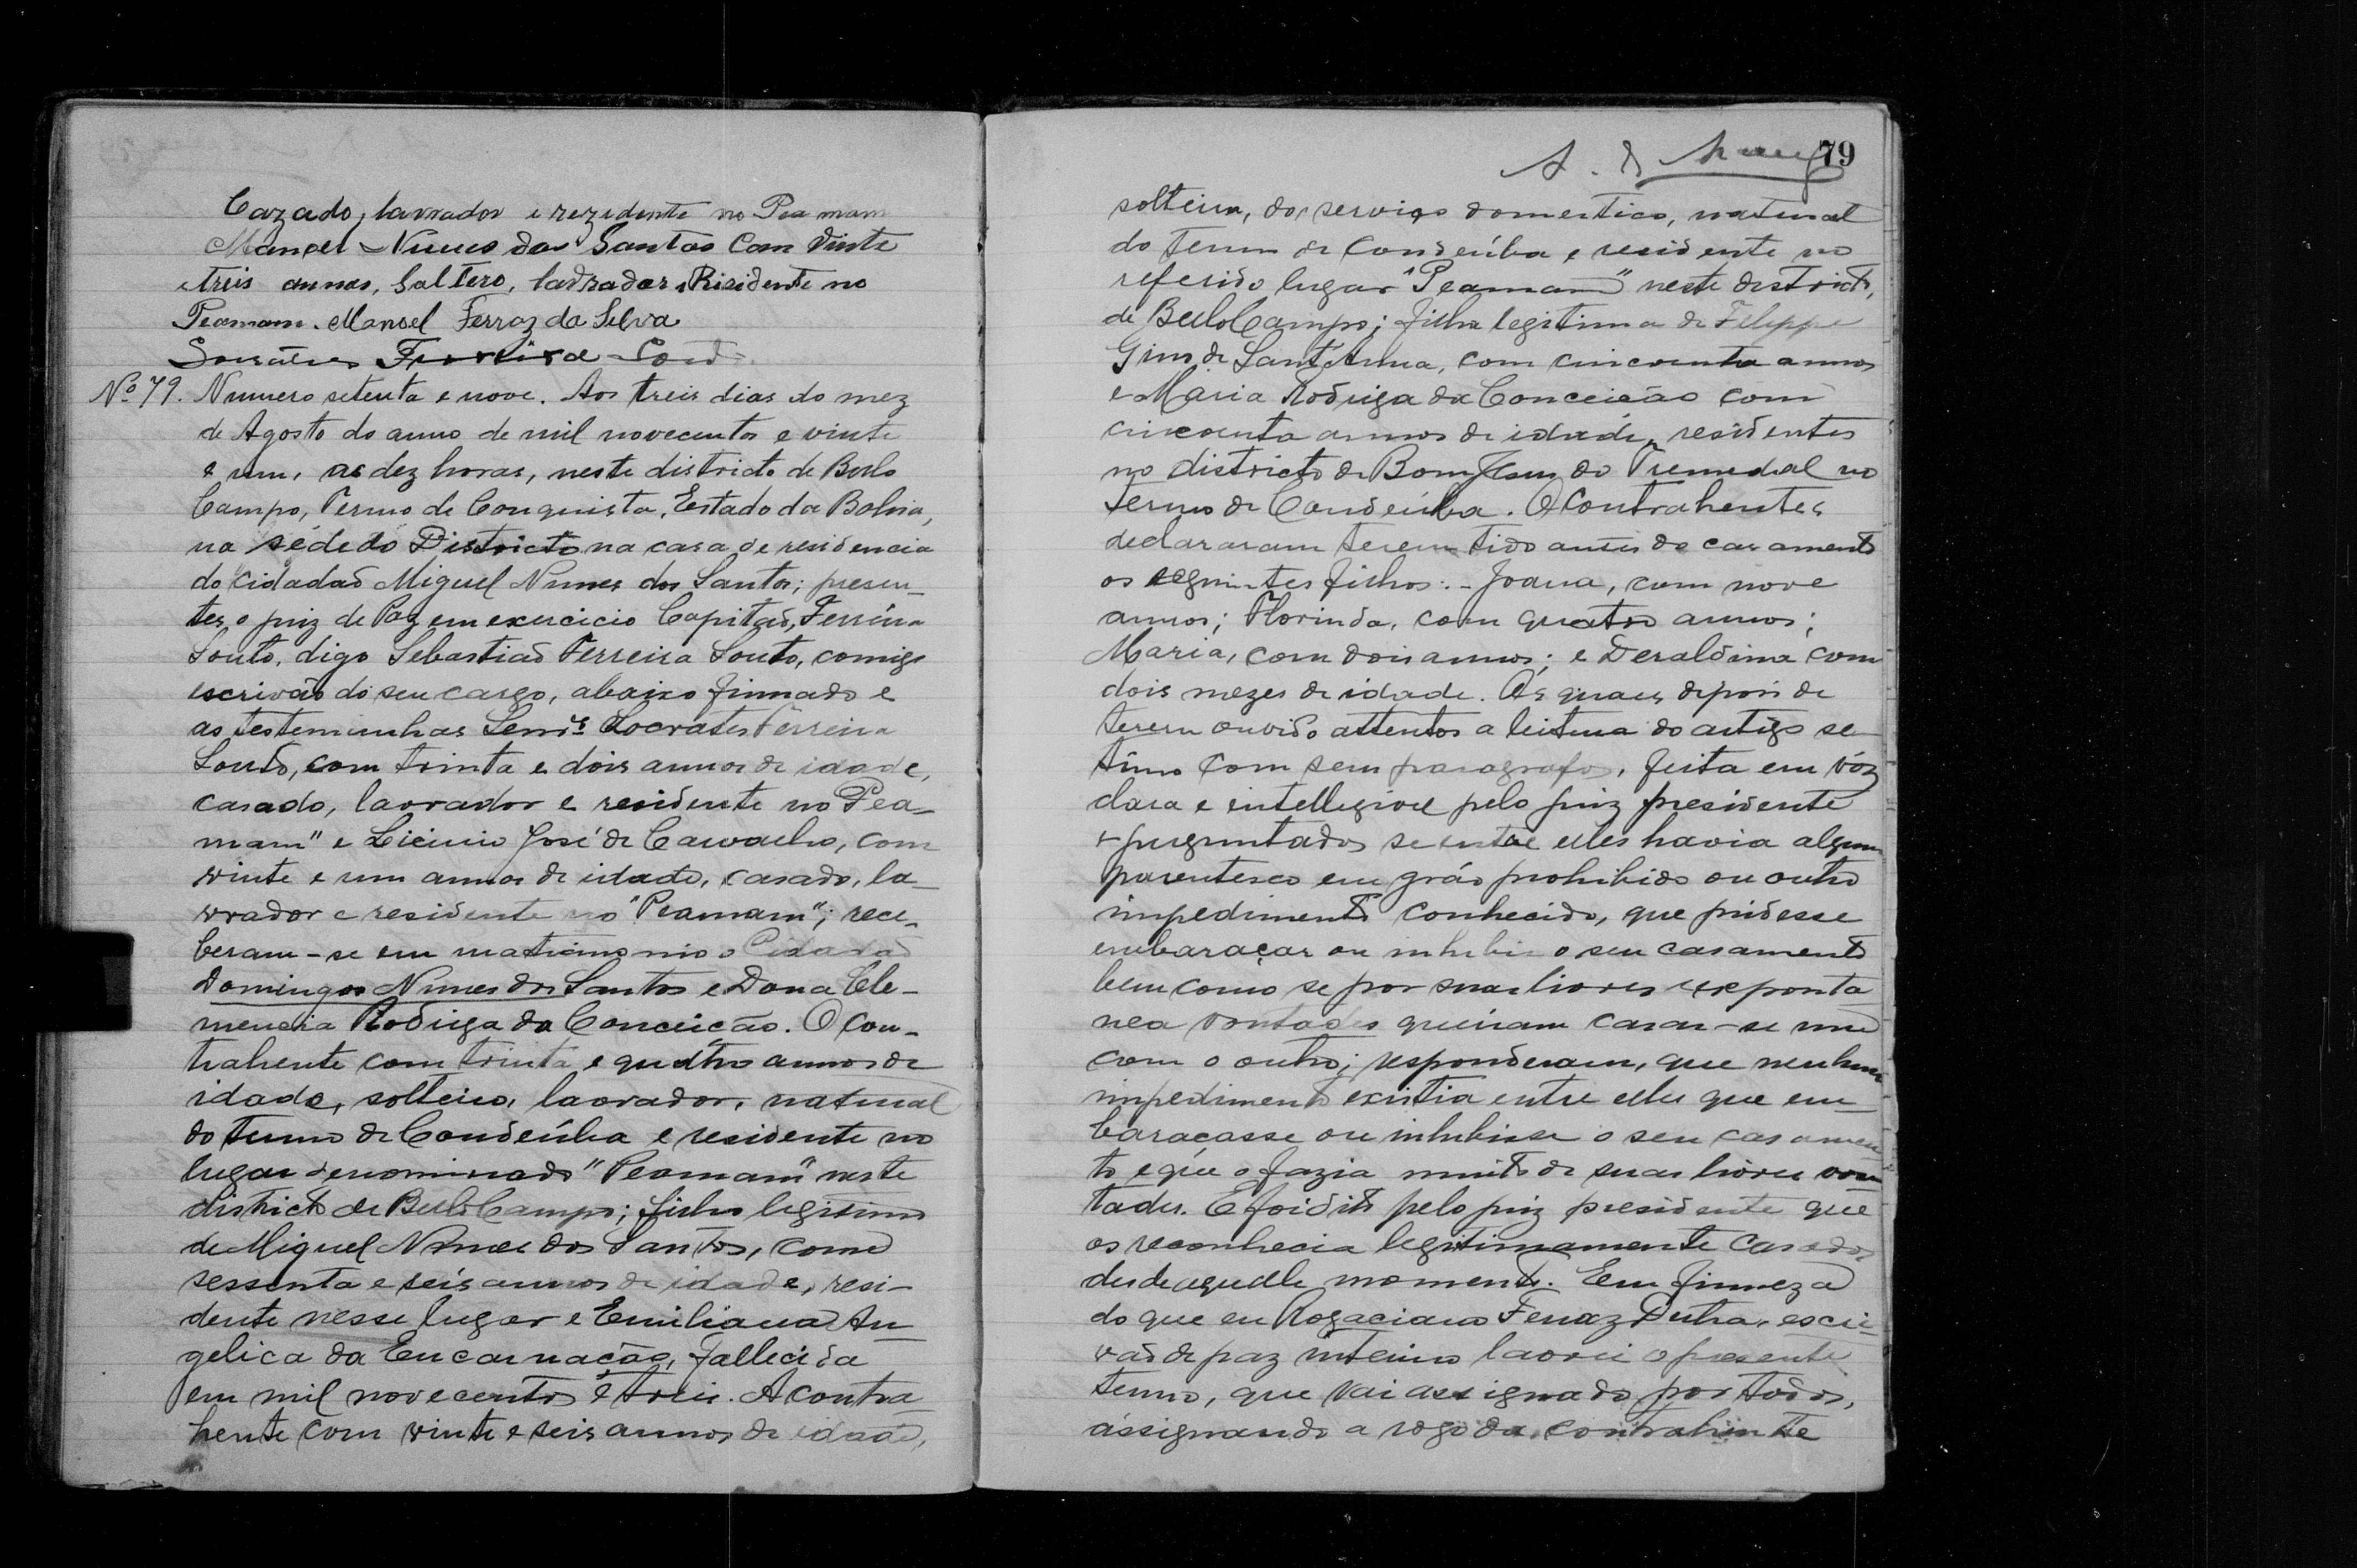 Cazado, lavrador e rezidente no Peamam
Manoel Nunes dos Santos Com Vinte
e treis annos, Saltero, ladrador e Risidente no
Peamam. Manoel Ferraz da Selva
Ferreira
Nº 79. Numero setenta e nove. Aos treis dias do mez
de Agosto do anno de mil novecentos e vinte
e um, as dez horas, neste districto de Bello
Campo, Termo de Conquista, Estado da Bahia,
na séde do Districto na casa de residencia
do cidadão Miguel Nunes dos Santos; presen-
tes o juiz de Paz em exercicio Capitão, Ferreira
Souto, digo Sebastião Ferreira Souto, comigo
escrivão do seu cargo, abaixo firmado e
as testemunhas Socrates Ferreira
Souto, com trinta e dois annos de idade,
casado, lavrador e residente no Pea-
mam" e Licinio José de Carvalho, com
vinte e um annos de idade, casado, la-
vrador e residente no "Peamam"; rece-
beram-se em matrimonio o Cidadão
Domingos Nunes dos Santos e Dona Cle-
mencia Rodriga da Conceição. O con-
trahente com trinta e quatro annos de
idade, solteiro, lavrador, natural
do termo de Condeúba e residente no
lugar denominado "Peamam" neste
districto de Bello Campo; filho legitimo
de Miguel Nunes dos Santos, com
sessenta e seis annos de idade, resi-
dente nesse lugar e Emiliana An
gelica da Encarnação, fallecida
em mil novecentos e treis. A contra
hente com vinte e seis annos de idade,
79
solteira, do serviço domestico, natural
do termo de Condeúba e residente no
referido lugar "Peamam" neste districto,
de Bello Campo; filha legitima de Felippe
de Sant'Anna, com cincoenta annos
e Maria Rodriga da Conceição com
cincoenta annos de idade, residentes
no districto de Bom Jesus do Tremedal no
termo de Condeúba. Os Contrahentes
declararam terem tido antes do casamento
os seguintes filhos: - Joana, com nove
annos; Florinda, com quatro annos;
Maria, com dois annos; e Deraldina com
dois mezes de idade. Os quaes depois de
terem ouvido attentos a leitura do artigo se
timo com seus paragrafos, feita em vóz
clara e intellegivel pelo juiz presidente
e perguntados se entre elles havia algum
parentesco em gráo prohibido ou outro
impedimento conhecido, que pudesse
embaraçar ou inhibir o seu casamento
bem como se por suas livres e exponta
nea vontades queiram casar-se um
com o outro; responderam, que nenhum
impedimento existia entre elles que em
baraçasse ou inhibisse o seu casamen
to e que o fazia muito de suas livres von
tades. E foi dito pelo juiz presidente que
os reconhecia legitimamente casados
desde aquelle momento. Em firmeza
do que eu Rogaciano Ferraz Dutra, escri-
vão de paz interino lavrei o presente
termo, que vai assignado por todos,
assignando a rogo da contrahente